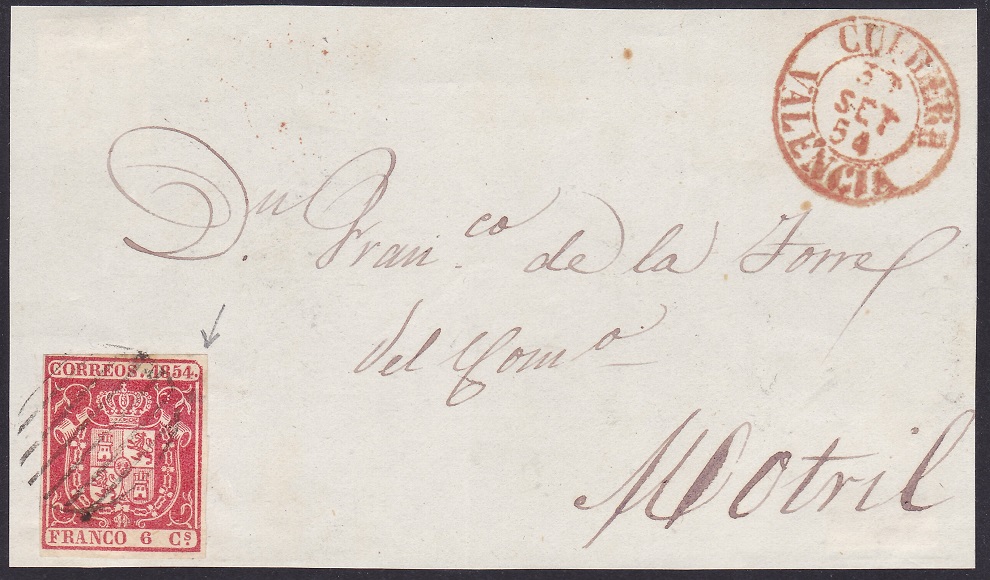 CULLERA
SET
54
VALENCIA
Dn Fran.co de la Torre
del Como
Motril
CORREOS. 1854.
FRANCO 6 Cs.